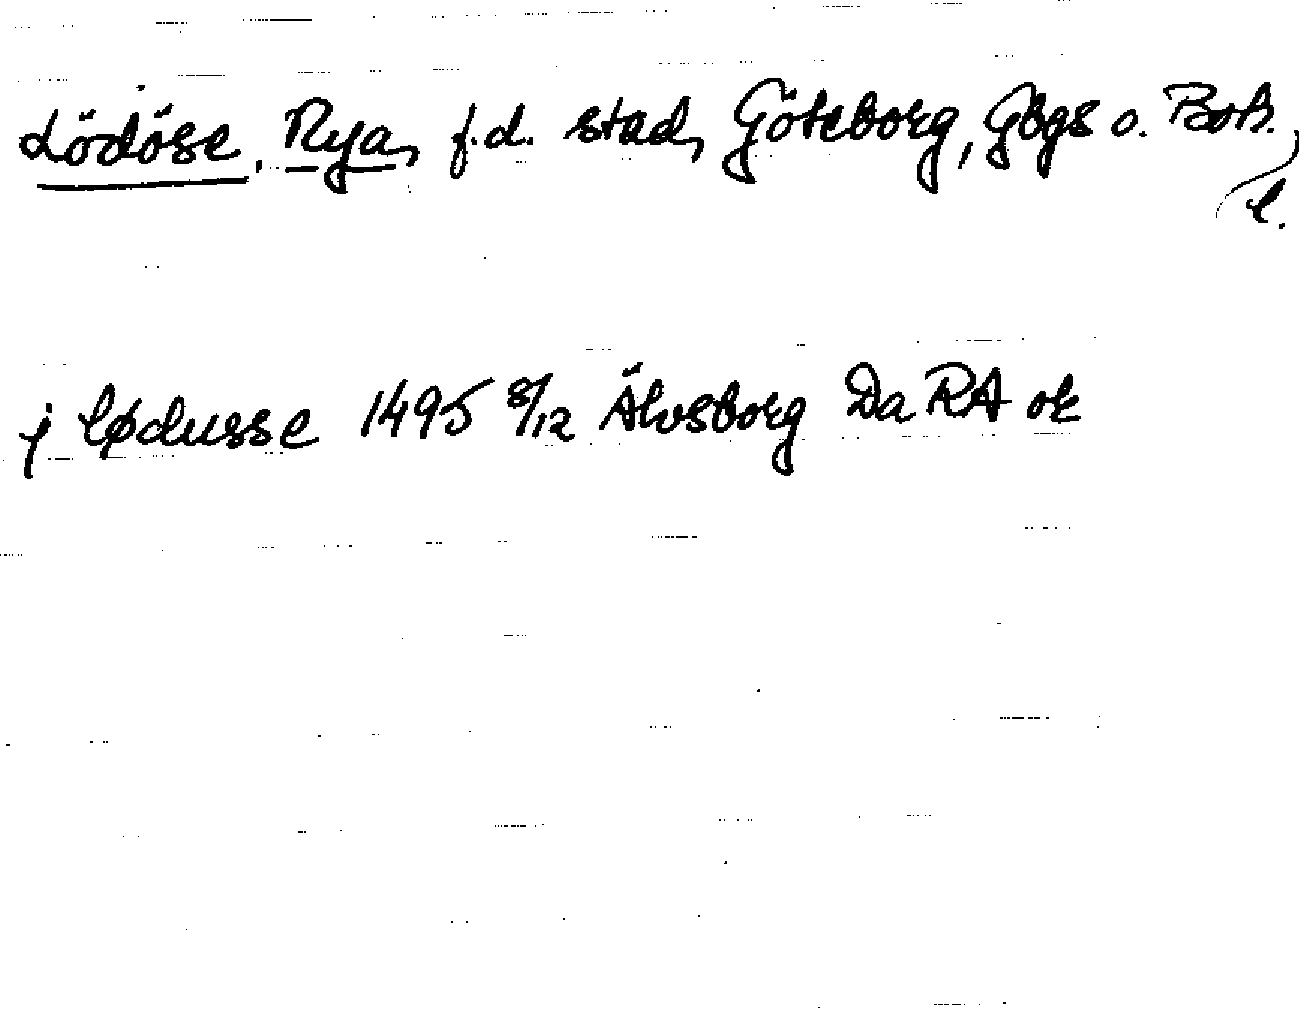 Lödöse, Nya, f.d. stad, Göteborg, Gbgs o. Boh.
l.
j lødusse 1495 8/12 Älvsborg Da RA ok